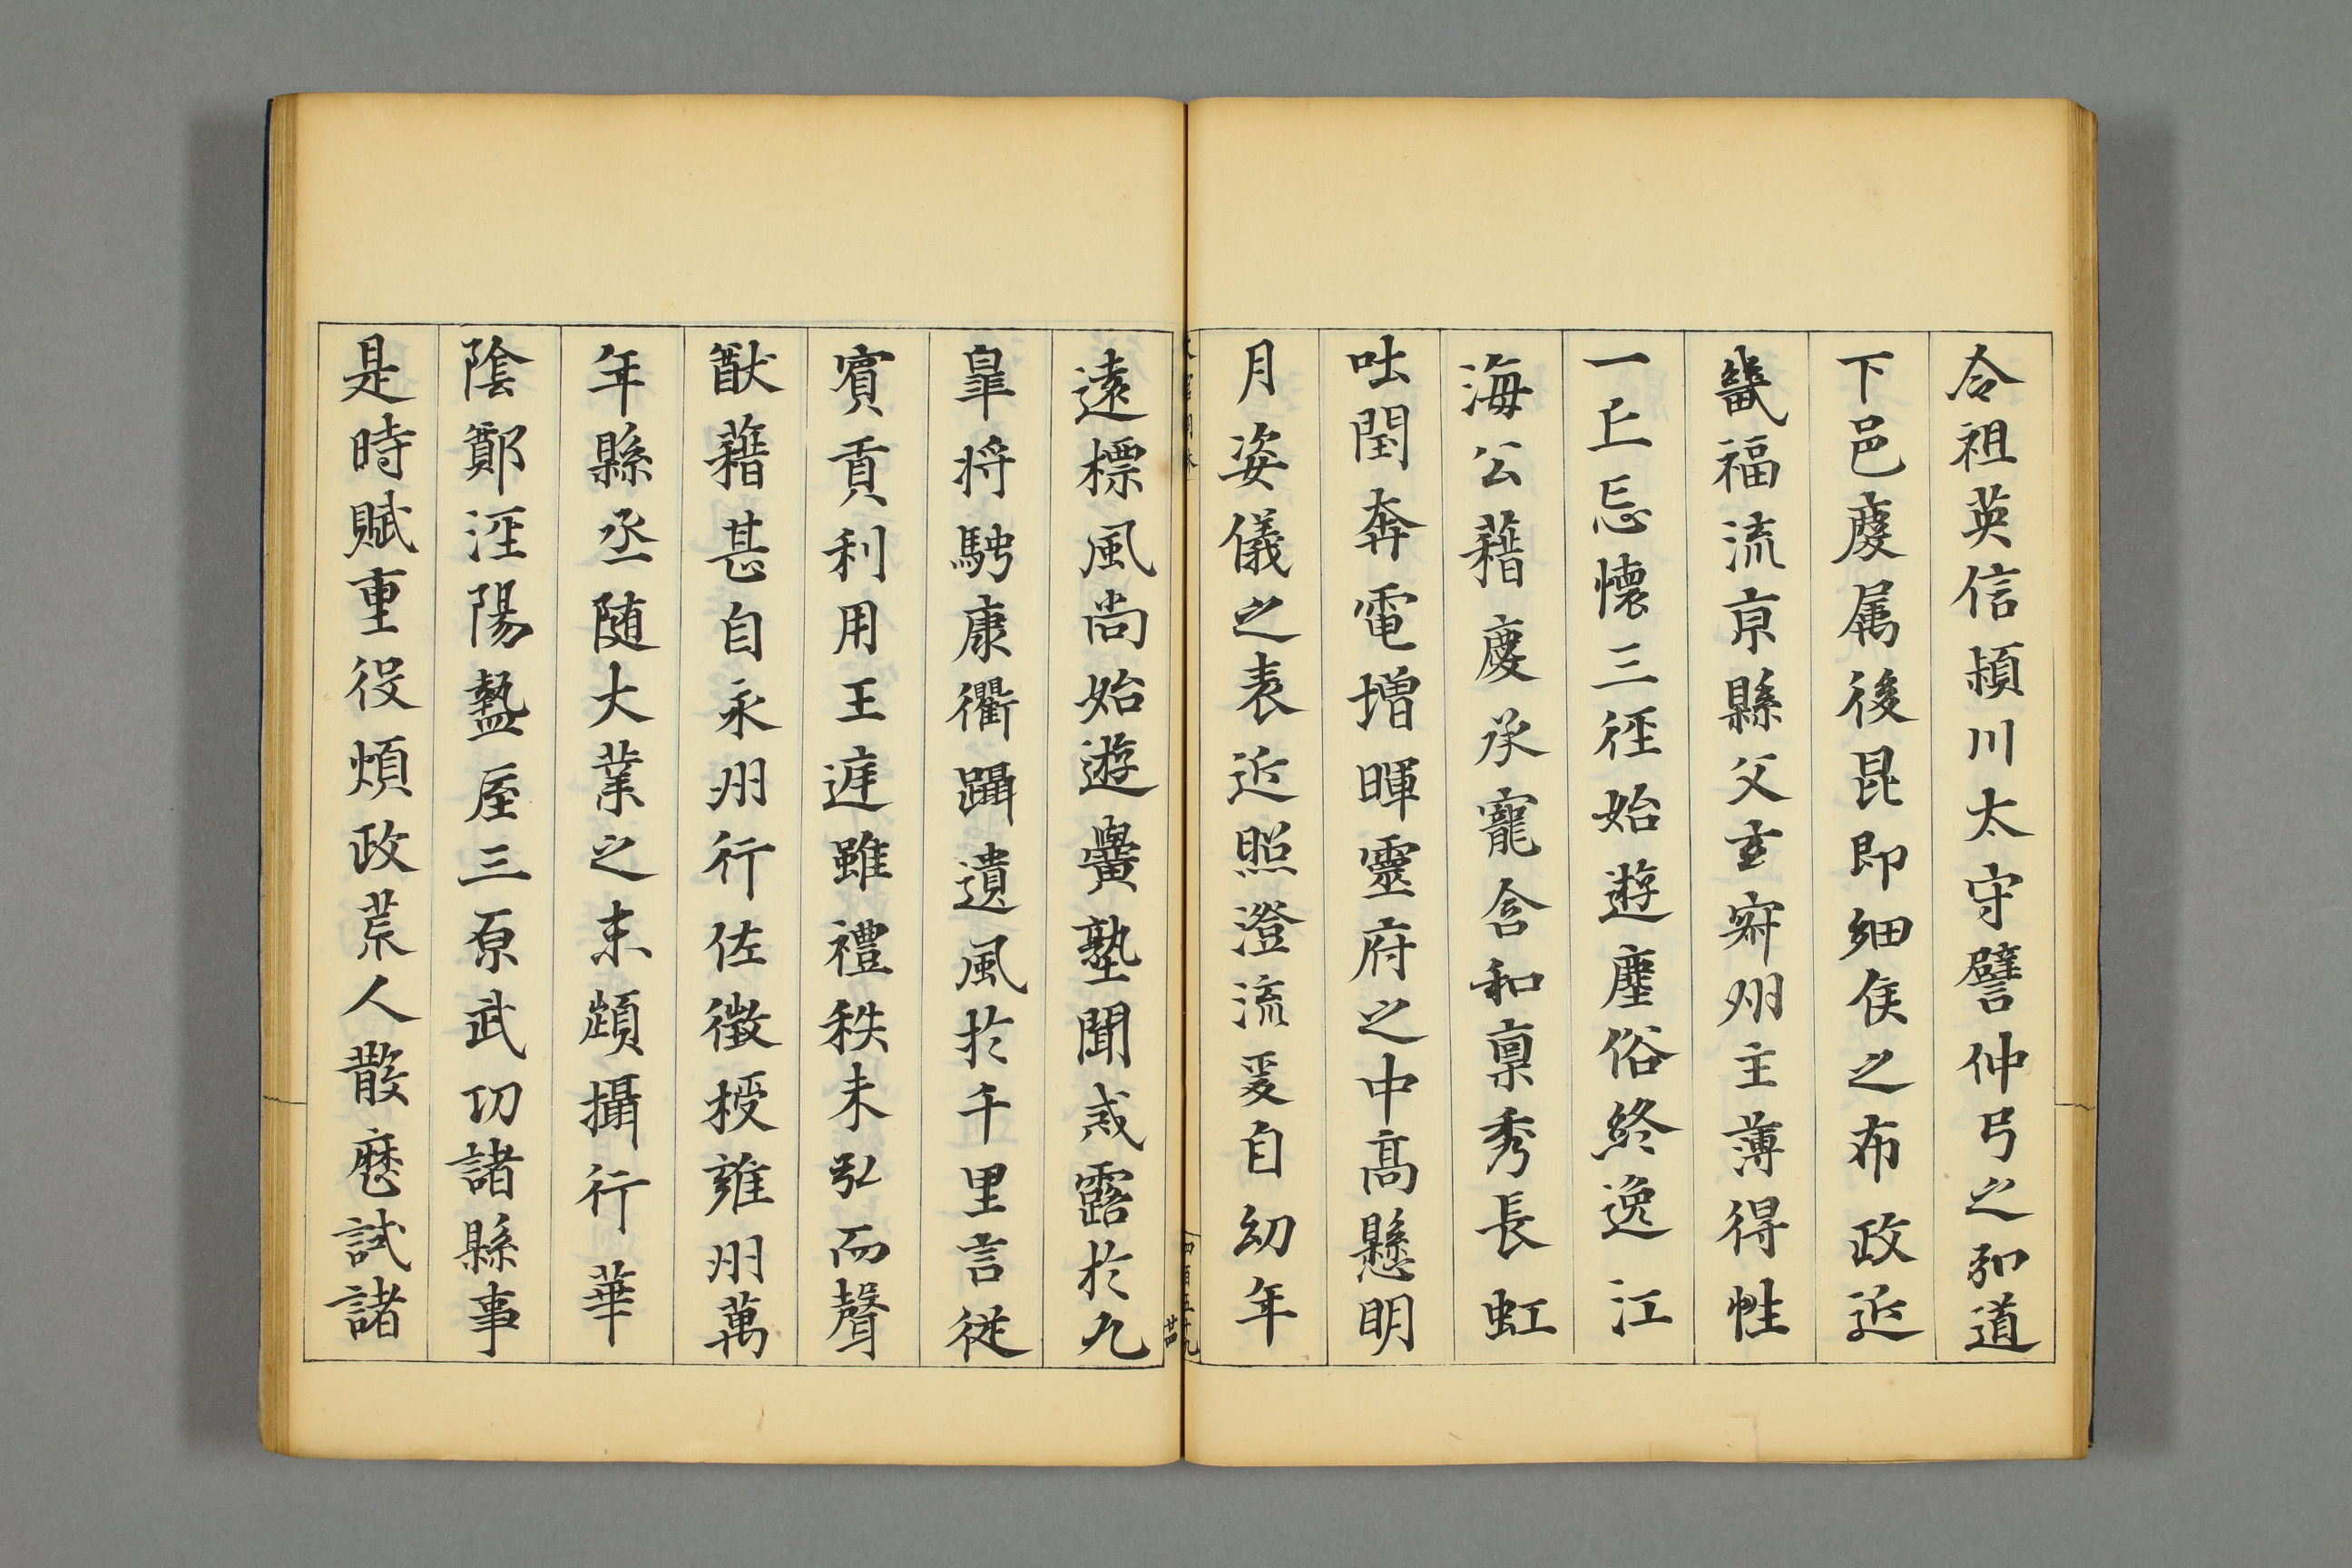 令祖英信潁川太守譬仲弓之弘道
下邑慶属後昆即細侯之布政近
畿福流京縣父玄辨州主薄得性
一丘忘懷三徑始遊塵俗終逸江
海公藉慶承寵含和禀秀長虹
吐閏奔電増暉靈府之中髙懸明
月姿儀之表近照澄流爰自幼年
遠標風尚始遊黌塾聞戒露於九
皐将騁康衢躡遺風於千里言従
賓貢利用王進雖禮秩未弘而聲
猷藉甚自永州行佐徵授雍州萬
年縣丞随大業之末頻攝行華
陰鄭涇陽盩厔三原武功諸縣事
是時賦重役煩政荒人散歴試諸